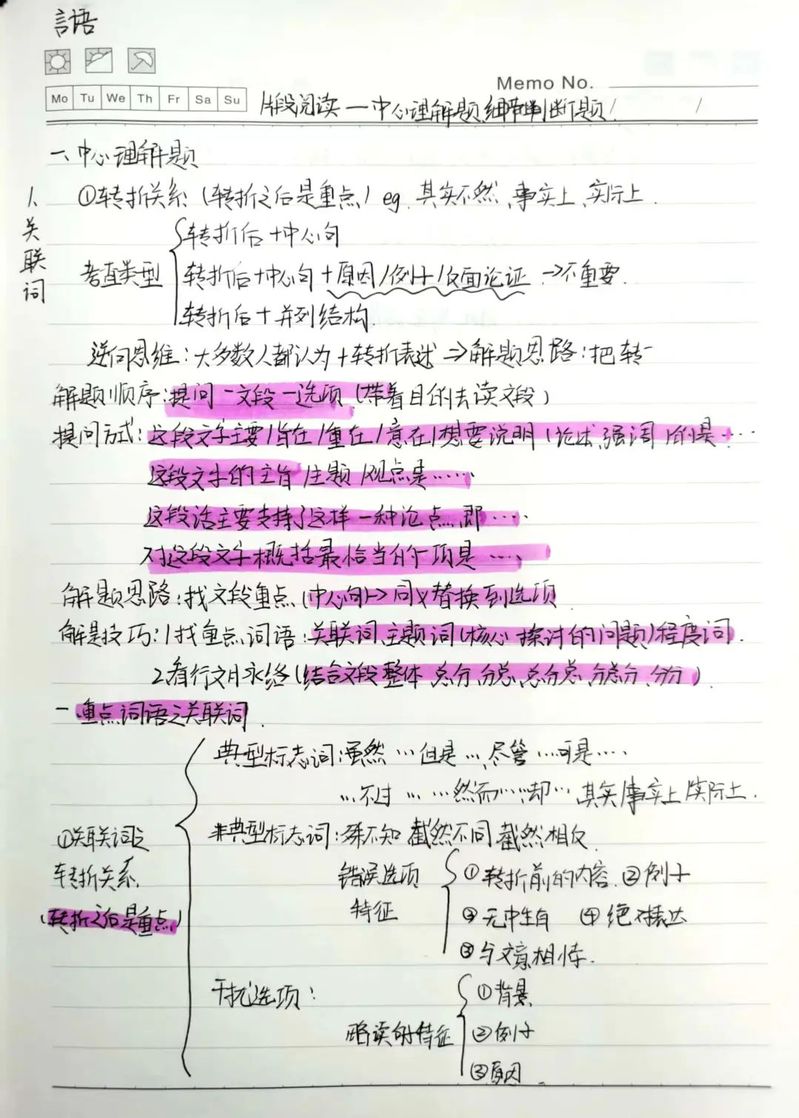 言语
Memo No.
Mo Tu We Th Fr Sa Su
片段阅读一中心理解题 细节判断题 / /
一、中心理解题
1、关联词
①转折关系 (转折之后是重点) eg. 其实不然、事实上、实际上.
考查类型
转折后+中心句
转折后+中心句+原因/例子/反面论证 →不重要.
转折后+并列结构.
逆向思维:大多数人都认为+转折表达⇒解题思路:把转
解题顺序:提问一文段一选项 (带着目的去读文段)
提问方式:这段文字主要/旨在/重在/意在/想要说明(论述、强调)的是…
这段文字的主旨/主题/观点是……
这段话主要支持了这样一种论点,即……
对这段文字概括最恰当的个项是……
解题思路:找文段重点(中心句)→同义替换到选项
解是技巧:1找重点词语:关联词、主题词(核心探讨的问题)程度词.
2.看行文脉络(结合文段整体 总分、分总、总分总、分总分、分分)
一重点词语之关联词.
典型标志词:虽然…但是…,尽管…可是…
…不过…,…然而…,…却…其实/事实上/实际上.
①关联词之
转折关系.
(转折之后是重点)
非典型标志词:殊不知 截然不同 截然相反
错误选项
特征
①转折前的内容. ②例子
③无中生有 ④绝对表达
③与文意相悖.
干扰选项:
略读的特征
①背景
②例子
③原因.